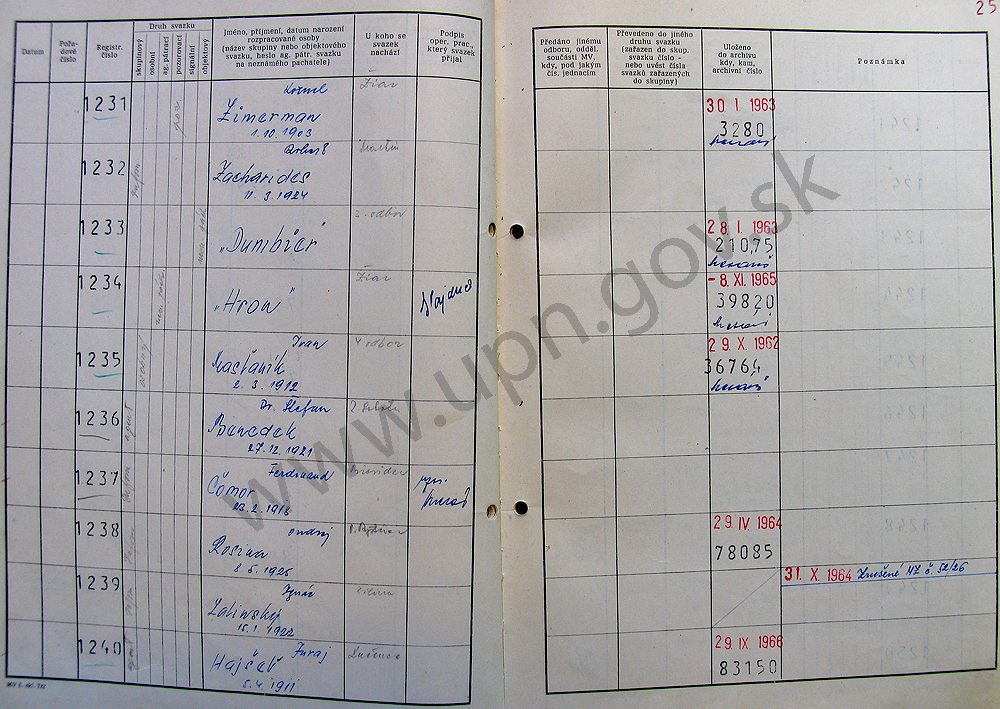 25
Datum
Pořadové číslo
Registr. číslo
Druh svazku
skupinový
osobní
ag. pátrací
pozorovací
signální
objektový
Jméno, příjmení, datum narození
rozpracované osoby
(název skupiny nebo objektového
svazku, heslo ag. pátr. svazku
na neznámého pachatele)
U koho se
svazek
nachází
Podpis
oper. prac.,
který svazek
přijal
Předáno jinému
odboru, odděl.
součásti MV,
kdy, pod jakým
čís. jednacím
Převedeno do jiného
druhu svazku
(zařazen do skup.
svazku číslo -
nebo uvést čísla
svazků zařazených
do skupiny)
Uloženo
do archivu
kdy, kam,
archivní číslo
Poznámka
1231
Kornel
Zimerman
1.10.1903
Žiar
30 I 1963
3280
1232
Zacharides
11.3.1924
Martin
1233
"Dumbier"
3. odbor
28. I. 1963
21075
1234
"Hron"
Žiar
-8. XI. 1965
39820
1235
Ivan
2.3.1912
4 odbor
29. X. 1962
36764
1236
agent
Dr. Štefan
Benedek
27.12.1921
1237
Ferdinand
Čomor
23.2.1913
1238
Ondrej
Rosina
8.5.1925
29. IV. 1964
78085
1239
Ignác
Zaliwský
15.1.1922
Žilina
31. X. 1964 Zrušené NZ č. 52/26
1240
agent
Juraj
Hajšel
5.4.1911
Lučenec
29. IX 1966
83150
www.upn.gov.sk